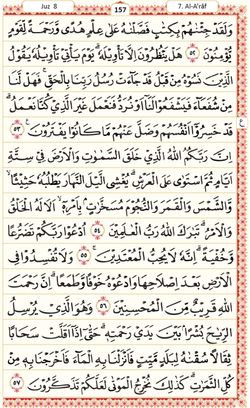 Juz 8
157
7. Al-A'râf
وَلَقَدْ جِئْنَٰهُم بِكِتَٰبٍ فَصَّلْنَٰهُ عَلَىٰ عِلْمٍ هُدًى وَرَحْمَةً لِّقَوْمٍ
يُؤْمِنُونَ ٥٢ هَلْ يَنظُرُونَ إِلَّا تَأْوِيلَهُۥ ۚ يَوْمَ يَأْتِى تَأْوِيلُهُۥ يَقُولُ
ٱلَّذِينَ نَسُوهُ مِن قَبْلُ قَدْ جَآءَتْ رُسُلُ رَبِّنَا بِٱلْحَقِّ فَهَل لَّنَا
مِن شُفَعَآءَ فَيَشْفَعُوا۟ لَنَآ أَوْ نُرَدُّ فَنَعْمَلَ غَيْرَ ٱلَّذِى كُنَّا نَعْمَلُ ۚ
قَدْ خَسِرُوٓا۟ أَنفُسَهُمْ وَضَلَّ عَنْهُم مَّا كَانُوا۟ يَفْتَرُونَ ٥٣
إِنَّ رَبَّكُمُ ٱللَّهُ ٱلَّذِى خَلَقَ ٱلسَّمَٰوَٰتِ وَٱلْأَرْضَ فِى سِتَّةِ
أَيَّامٍ ثُمَّ ٱسْتَوَىٰ عَلَى ٱلْعَرْشِ يُغْشِى ٱلَّيْلَ ٱلنَّهَارَ يَطْلُبُهُۥ حَثِيثًا
وَٱلشَّمْسَ وَٱلْقَمَرَ وَٱلنُّجُومَ مُسَخَّرَٰتٍۭ بِأَمْرِهِۦٓ ۗ أَلَا لَهُ ٱلْخَلْقُ
وَٱلْأَمْرُ ۗ تَبَارَكَ ٱللَّهُ رَبُّ ٱلْعَٰلَمِينَ ٥٤ ٱدْعُوا۟ رَبَّكُمْ تَضَرُّعًا
وَخُفْيَةً ۚ إِنَّهُۥ لَا يُحِبُّ ٱلْمُعْتَدِينَ ٥٥ وَلَا تُفْسِدُوا۟ فِى
ٱلْأَرْضِ بَعْدَ إِصْلَٰحِهَا وَٱدْعُوهُ خَوْفًا وَطَمَعًا ۚ إِنَّ رَحْمَتَ
ٱللَّهِ قَرِيبٌ مِّنَ ٱلْمُحْسِنِينَ ٥٦ وَهُوَ ٱلَّذِى يُرْسِلُ
ٱلرِّيَٰحَ بُشْرًۢا بَيْنَ يَدَىْ رَحْمَتِهِۦ ۖ حَتَّىٰٓ إِذَآ أَقَلَّتْ سَحَابًا
ثِقَالًا سُقْنَٰهُ لِبَلَدٍ مَّيِّتٍ فَأَنزَلْنَا بِهِ ٱلْمَآءَ فَأَخْرَجْنَا بِهِۦ مِن
كُلِّ ٱلثَّمَرَٰتِ ۚ كَذَٰلِكَ نُخْرِجُ ٱلْمَوْتَىٰ لَعَلَّكُمْ تَذَكَّرُونَ ٥٧